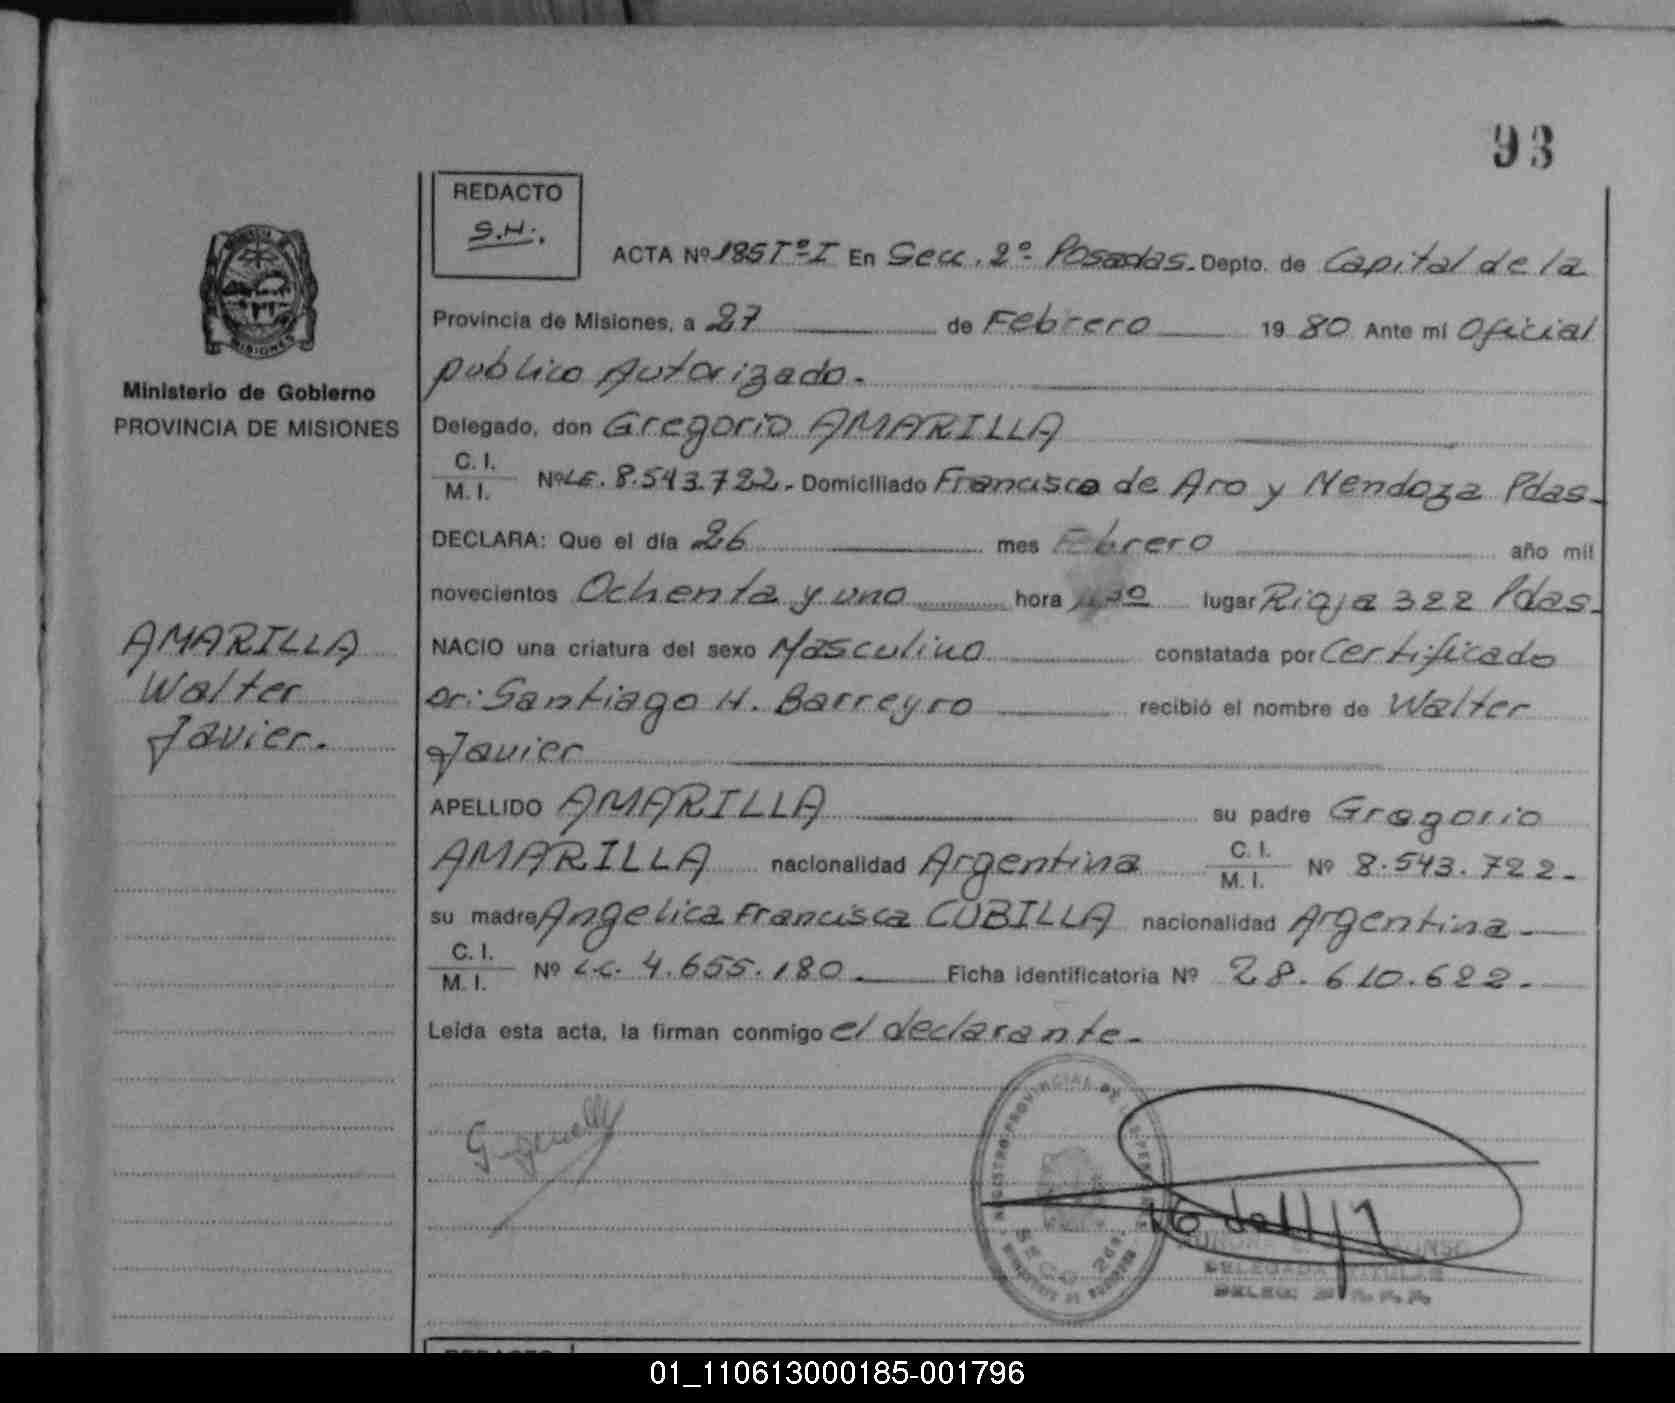 93
REDACTO
S.H.
ACTA Nº 185 Tº I En Secc. 2º Posadas. Depto. de Capital de la
Provincia de Misiones, a 27 de Febrero 19 80 Ante mí Oficial
publico Autorizado.
MISIONES
Ministerio de Gobierno
PROVINCIA DE MISIONES
Delegado, don Gregorio AMARILLA
C. I.
M. I. Nº LE. 8.543.722. Domiciliado Francisco de Aro y Mendoza Pdas.
DECLARA: Que el día 26 mes Febrero año mil
novecientos Ochenta y uno hora lugar Rioja 322 Pdas.
AMARILLA
Walter
Javier.
NACIO una criatura del sexo Masculino constatada por Certificado
Dr: Santiago H. Barreyro recibió el nombre de Walter
Javier
APELLIDO AMARILLA su padre Gregorio
AMARILLA nacionalidad Argentina C. I. M. I. Nº 8.543.722.
su madre Angelica Francisca CUBILLA nacionalidad Argentina.
C. I.
M. I. Nº L.C. 4.655.180. Ficha identificatoria Nº 28.610.622.
Leída esta acta, la firman conmigo el declarante.
REGISTRO PROVINCIAL DE
SECC. 2da.
DELEGADA TITULAR
01_110613000185-001796